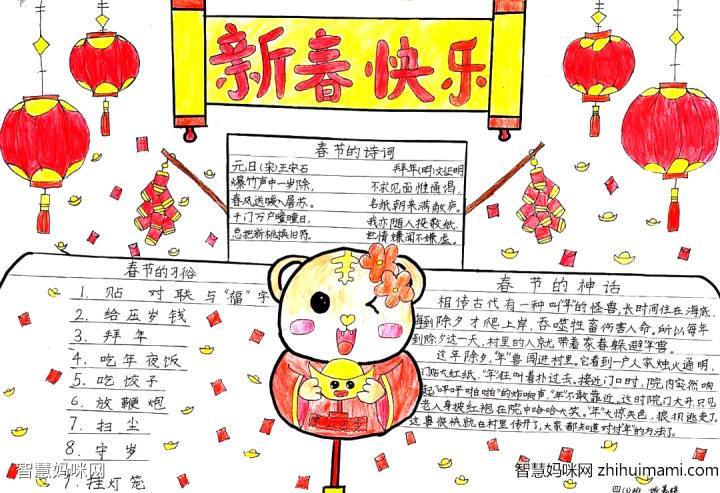 新春快乐
春节的诗词
元日(宋)王安石
爆竹声中一岁除,
春风送暖入屠苏。
千门万户曈曈日,
总把新桃换旧符。
拜年(明)文征明
不求见面惟通谒,
名纸朝来满敝庐。
我亦随人投数纸,
世情嫌简不嫌虚。
春节的习俗
1. 贴 对联与“福”字
2. 给压岁钱
3. 拜年
4. 吃年夜饭
5. 吃饺子
6. 放鞭炮
7. 扫尘
8. 守岁
挂灯笼
春节的神话
相传古代有一种叫“年”的怪兽,长时间住在海底,
每到除夕才爬上岸,吞噬牲畜伤害人命。所以每年
到除夕这一天,村里的人就带着家眷躲避年兽。
这年除夕,“年”兽闯进村里。它看到一户人家烛火通明,
门贴大红纸,“年”狂叫着扑过去。接近门口时,院内突然响
起“呯呯啪啪”的炸响声,“年”不敢靠近。这时院门大开,只见
老人身披红袍在院中哈哈大笑。“年”大惊失色,狼狈逃走了。
这事很快就在村里传开了,大家都知道对付年的方法了。
智慧妈咪网
智慧妈咪网 zhihuimami.com